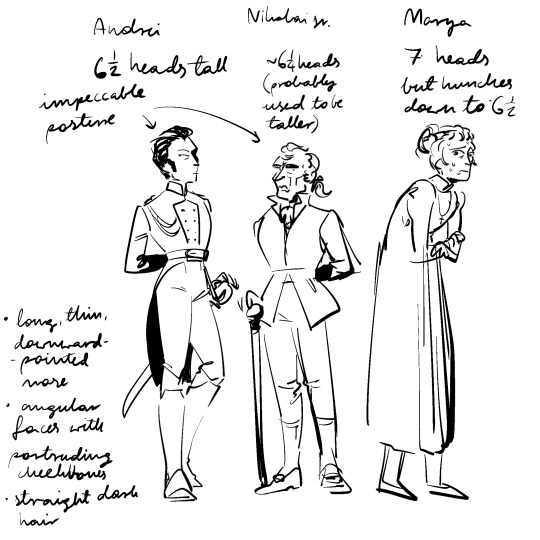 Andrei
6½ heads tall
impeccable
posture
Nikolai sr.
~6¼ heads
(probably
used to be
taller)
Marya
7 heads
but hunches
down to 6½
• long, thin,
downward-
-pointed
nose
• angular
faces with
protruding
cheekbones
• straight dark
hair